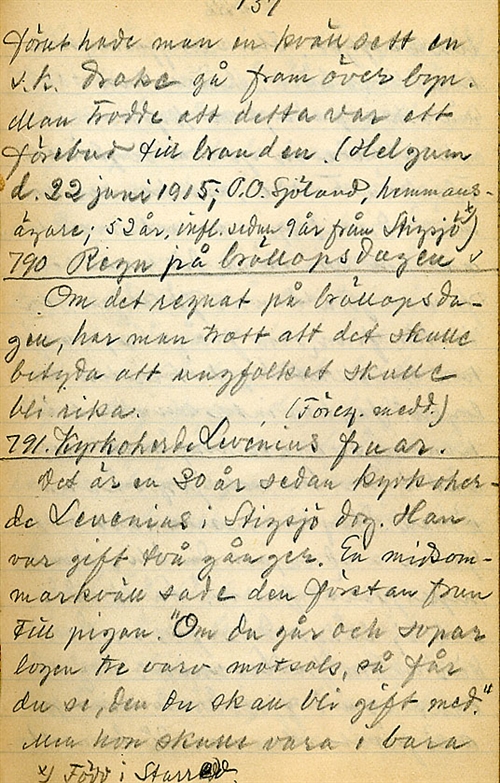 137
förut hade man en kväll sett en
s.k. drake gå fram över byn.
Man trodde att detta var ett
förebud till branden. (Helgum
d. 22 juni 1915; P.O. Sjölund, hemmans-
ägare; 52 år, infl. sedan 9 år från Stigsjö x)
790 Regn på bröllopsdagen
Om det regnat på bröllopsda-
gen, har man trott att det skulle
betyda att ungfolket skulle
bli rika. (Föreg. medd.)
791. Kyrkoherde Levenius fruar.
Det är en 30 år sedan kyrkoher-
de Levenius i Stigsjö dog. Han
var gift två gånger. En midsom-
markväll sade den förstan frun
till pigan. "Om du går och sopar
logen tre varv motsols, så får
du se, den du skall bli gift med."
Men hon skulle vara i bara
x) Född i